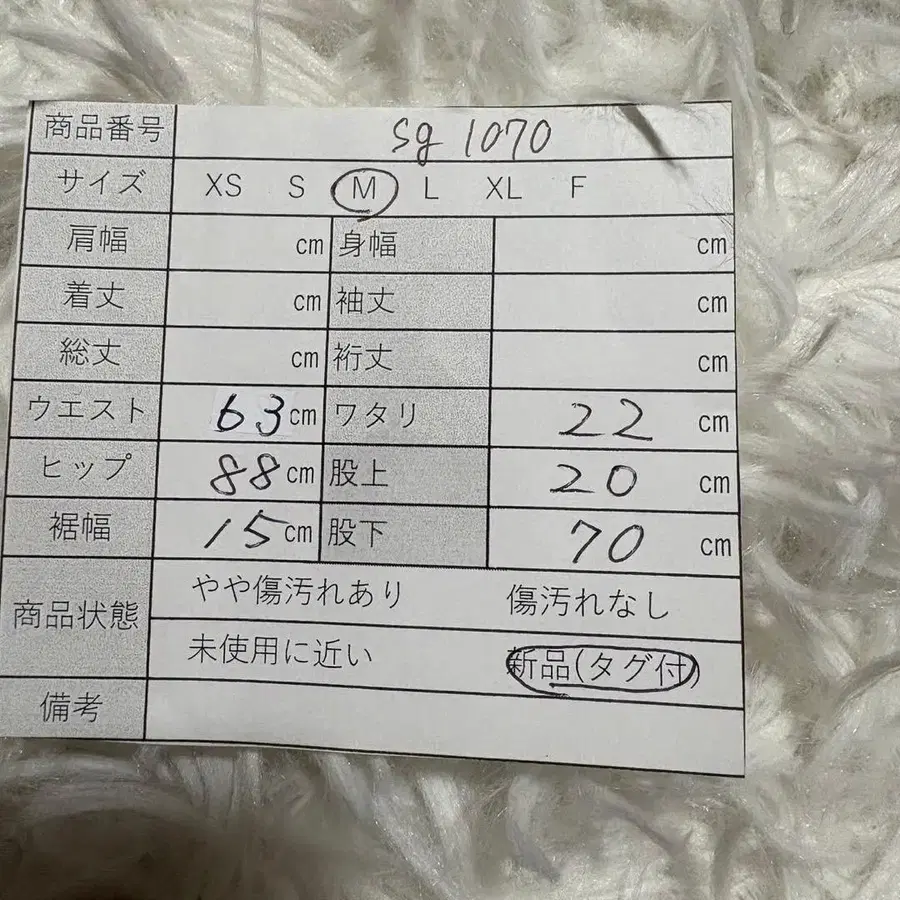 商品番号 sg 1070
サイズ XS S M L XL F
肩幅 cm 身幅 cm
着丈 cm 袖丈 cm
総丈 cm 裄丈 cm
ウエスト 63cm ワタリ 22 cm
ヒップ 88cm 股上 20 cm
裾幅 15cm 股下 70 cm
商品状態 やや傷汚れあり 傷汚れなし
未使用に近い 新品(タグ付)
備考